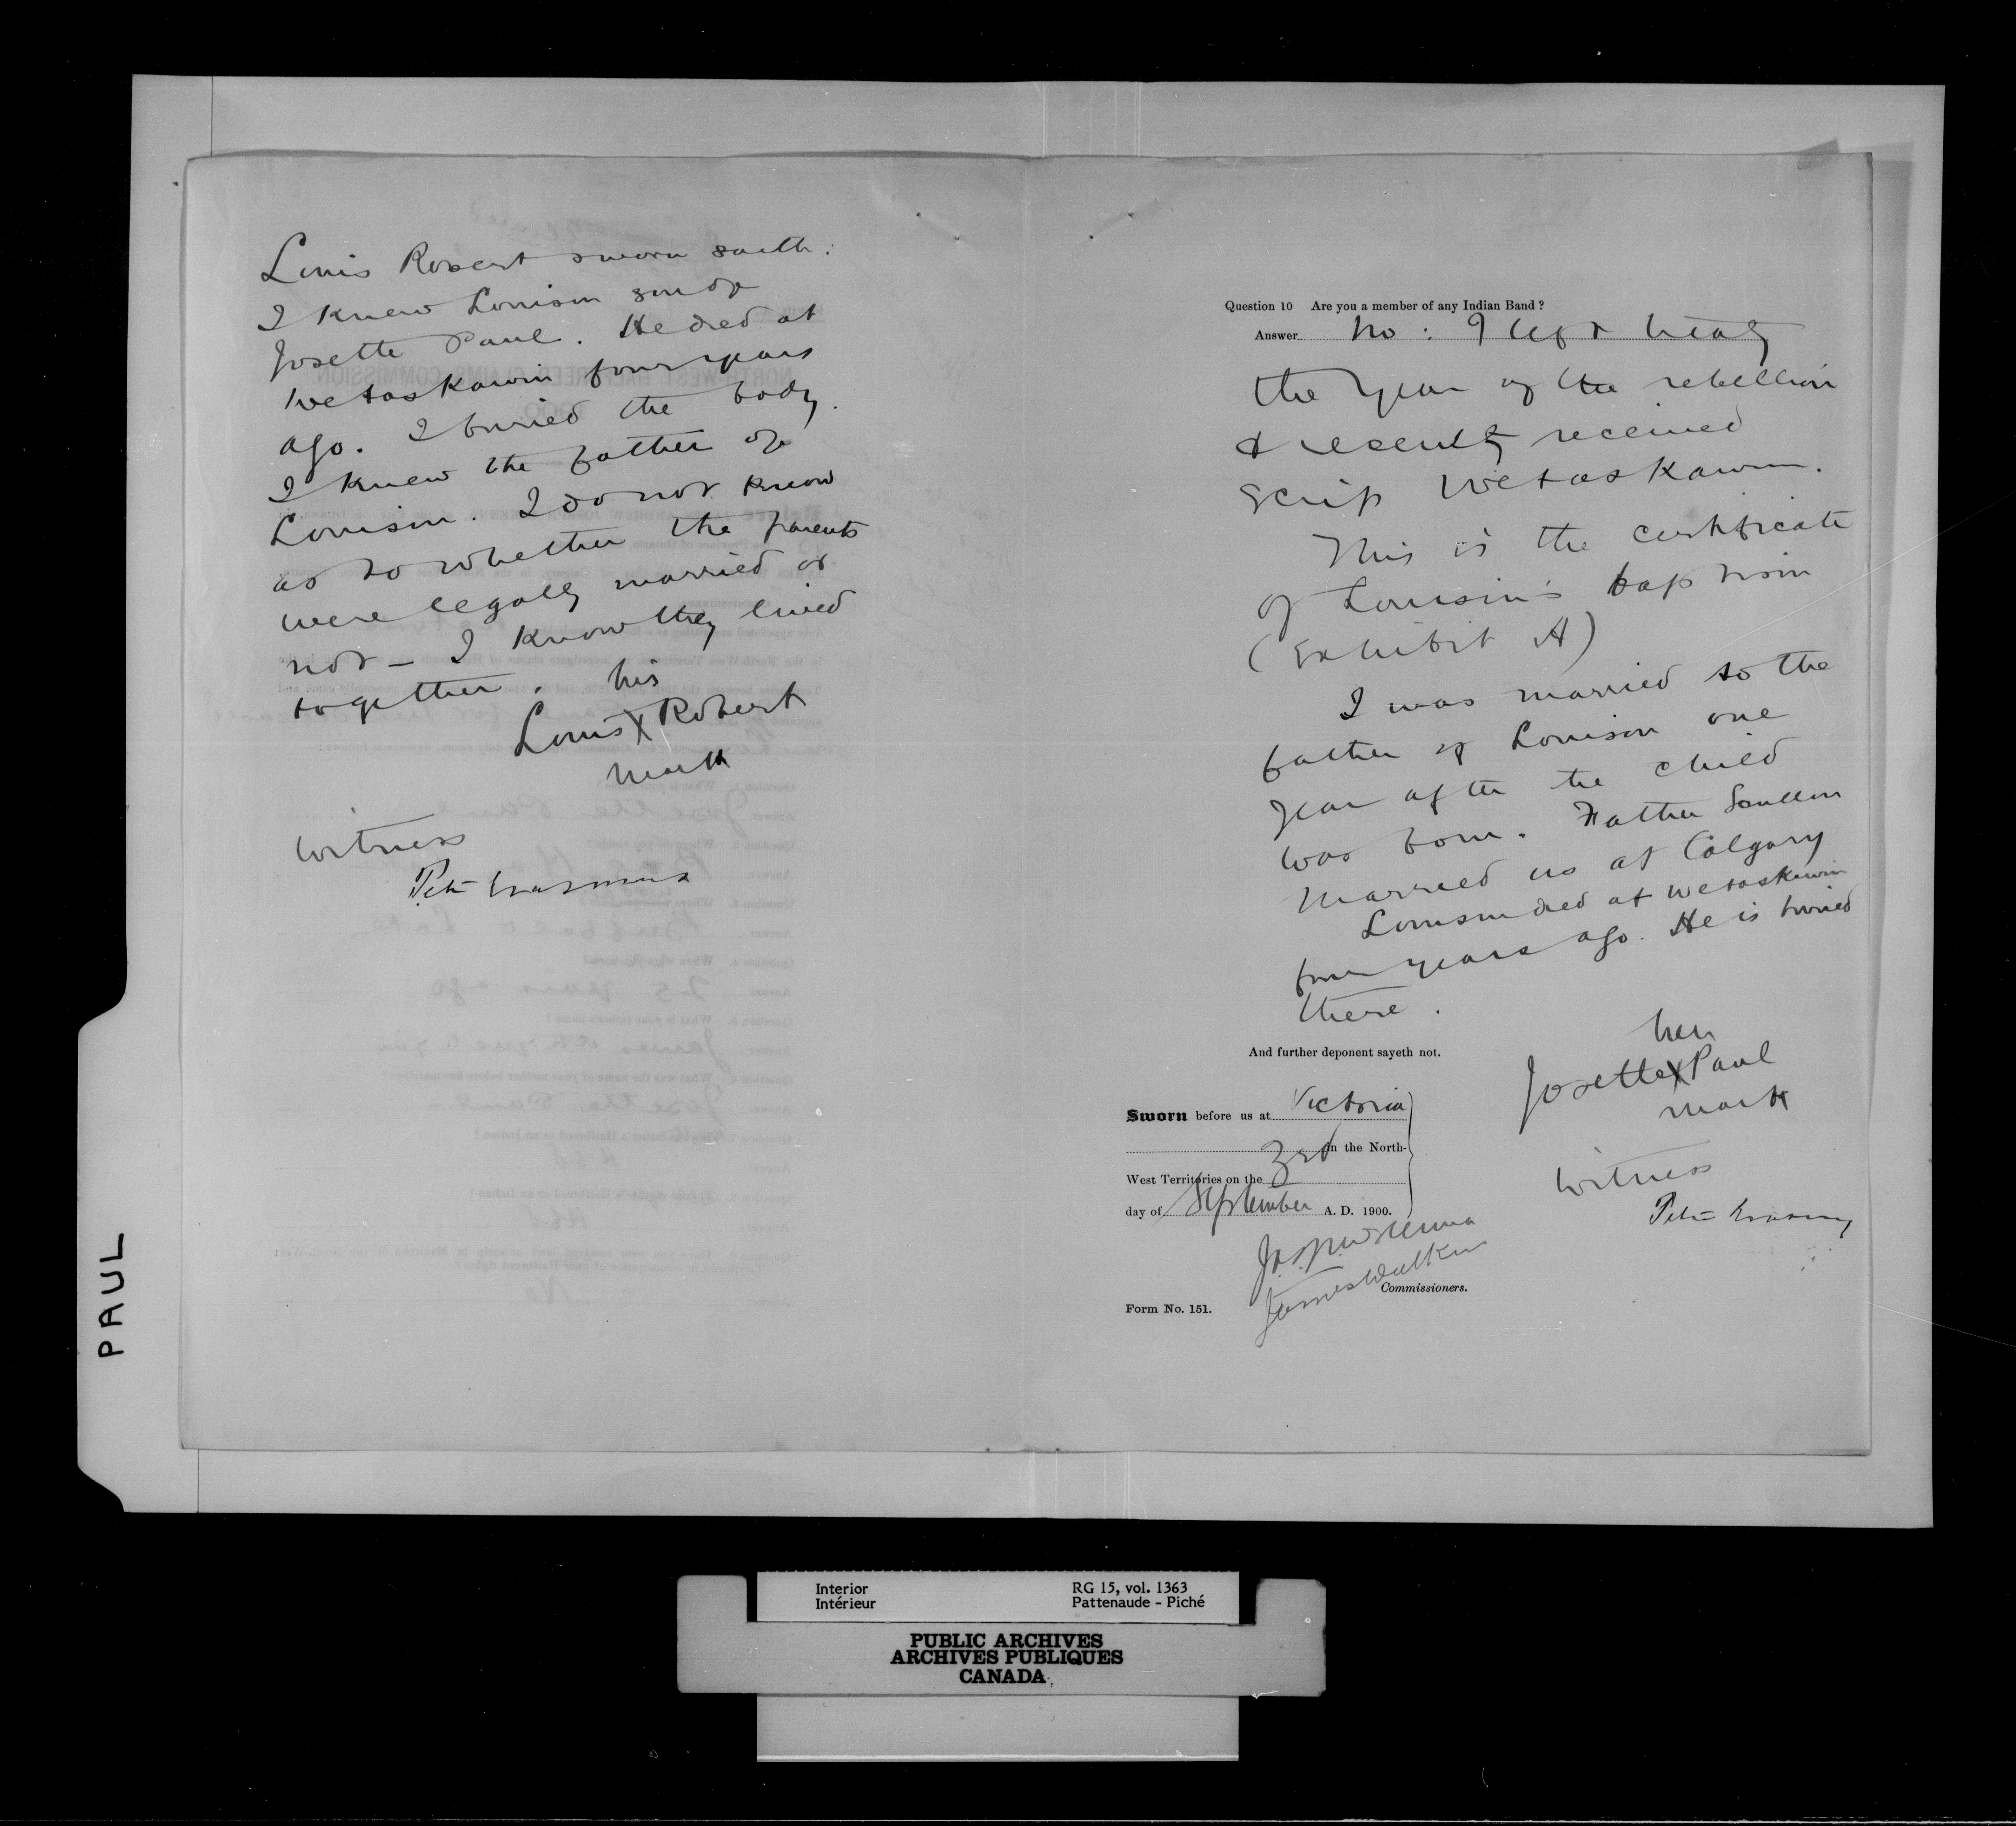 Louis Robert sworn saith:
I knew Louison son of
Josette Paul. He died at
Wetaskawin four years
ago. I buried the body.
I knew the father of
Louison. I do not know
as to whether the parents
were legally married or
not – I know they lived
together.
his
Louis X Robert
mark
Witness
Peter Erasmus
Question 10 Are you a member of any Indian Band?
Answer No: I left treaty
the year of the rebellion
& recently received
scrip Wetaskawin.
This is the certificate
of Louison's baptism
(Exhibit A)
I was married to the
father of Louison one
year after the child
was born. Father
married us at Calgary
Louison died at Wetaskiwin
four years ago. He is buried
there.
And further deponent sayeth not.
her
Josette X Paul
mark
Sworn before us at Victoria
3rd in the North-
West Territories on the
day of September A. D. 1900.
Witness
Peter Erasmus
James Walker
Commissioners.
Form No. 151.
PAUL
Interior
Intérieur
RG 15, vol. 1363
Pattenaude - Piché
PUBLIC ARCHIVES
ARCHIVES PUBLIQUES
CANADA